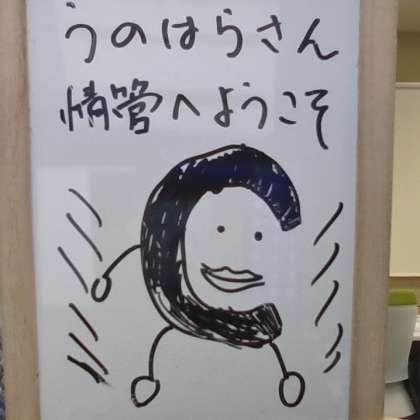 うのはらさん
情管へようこそ